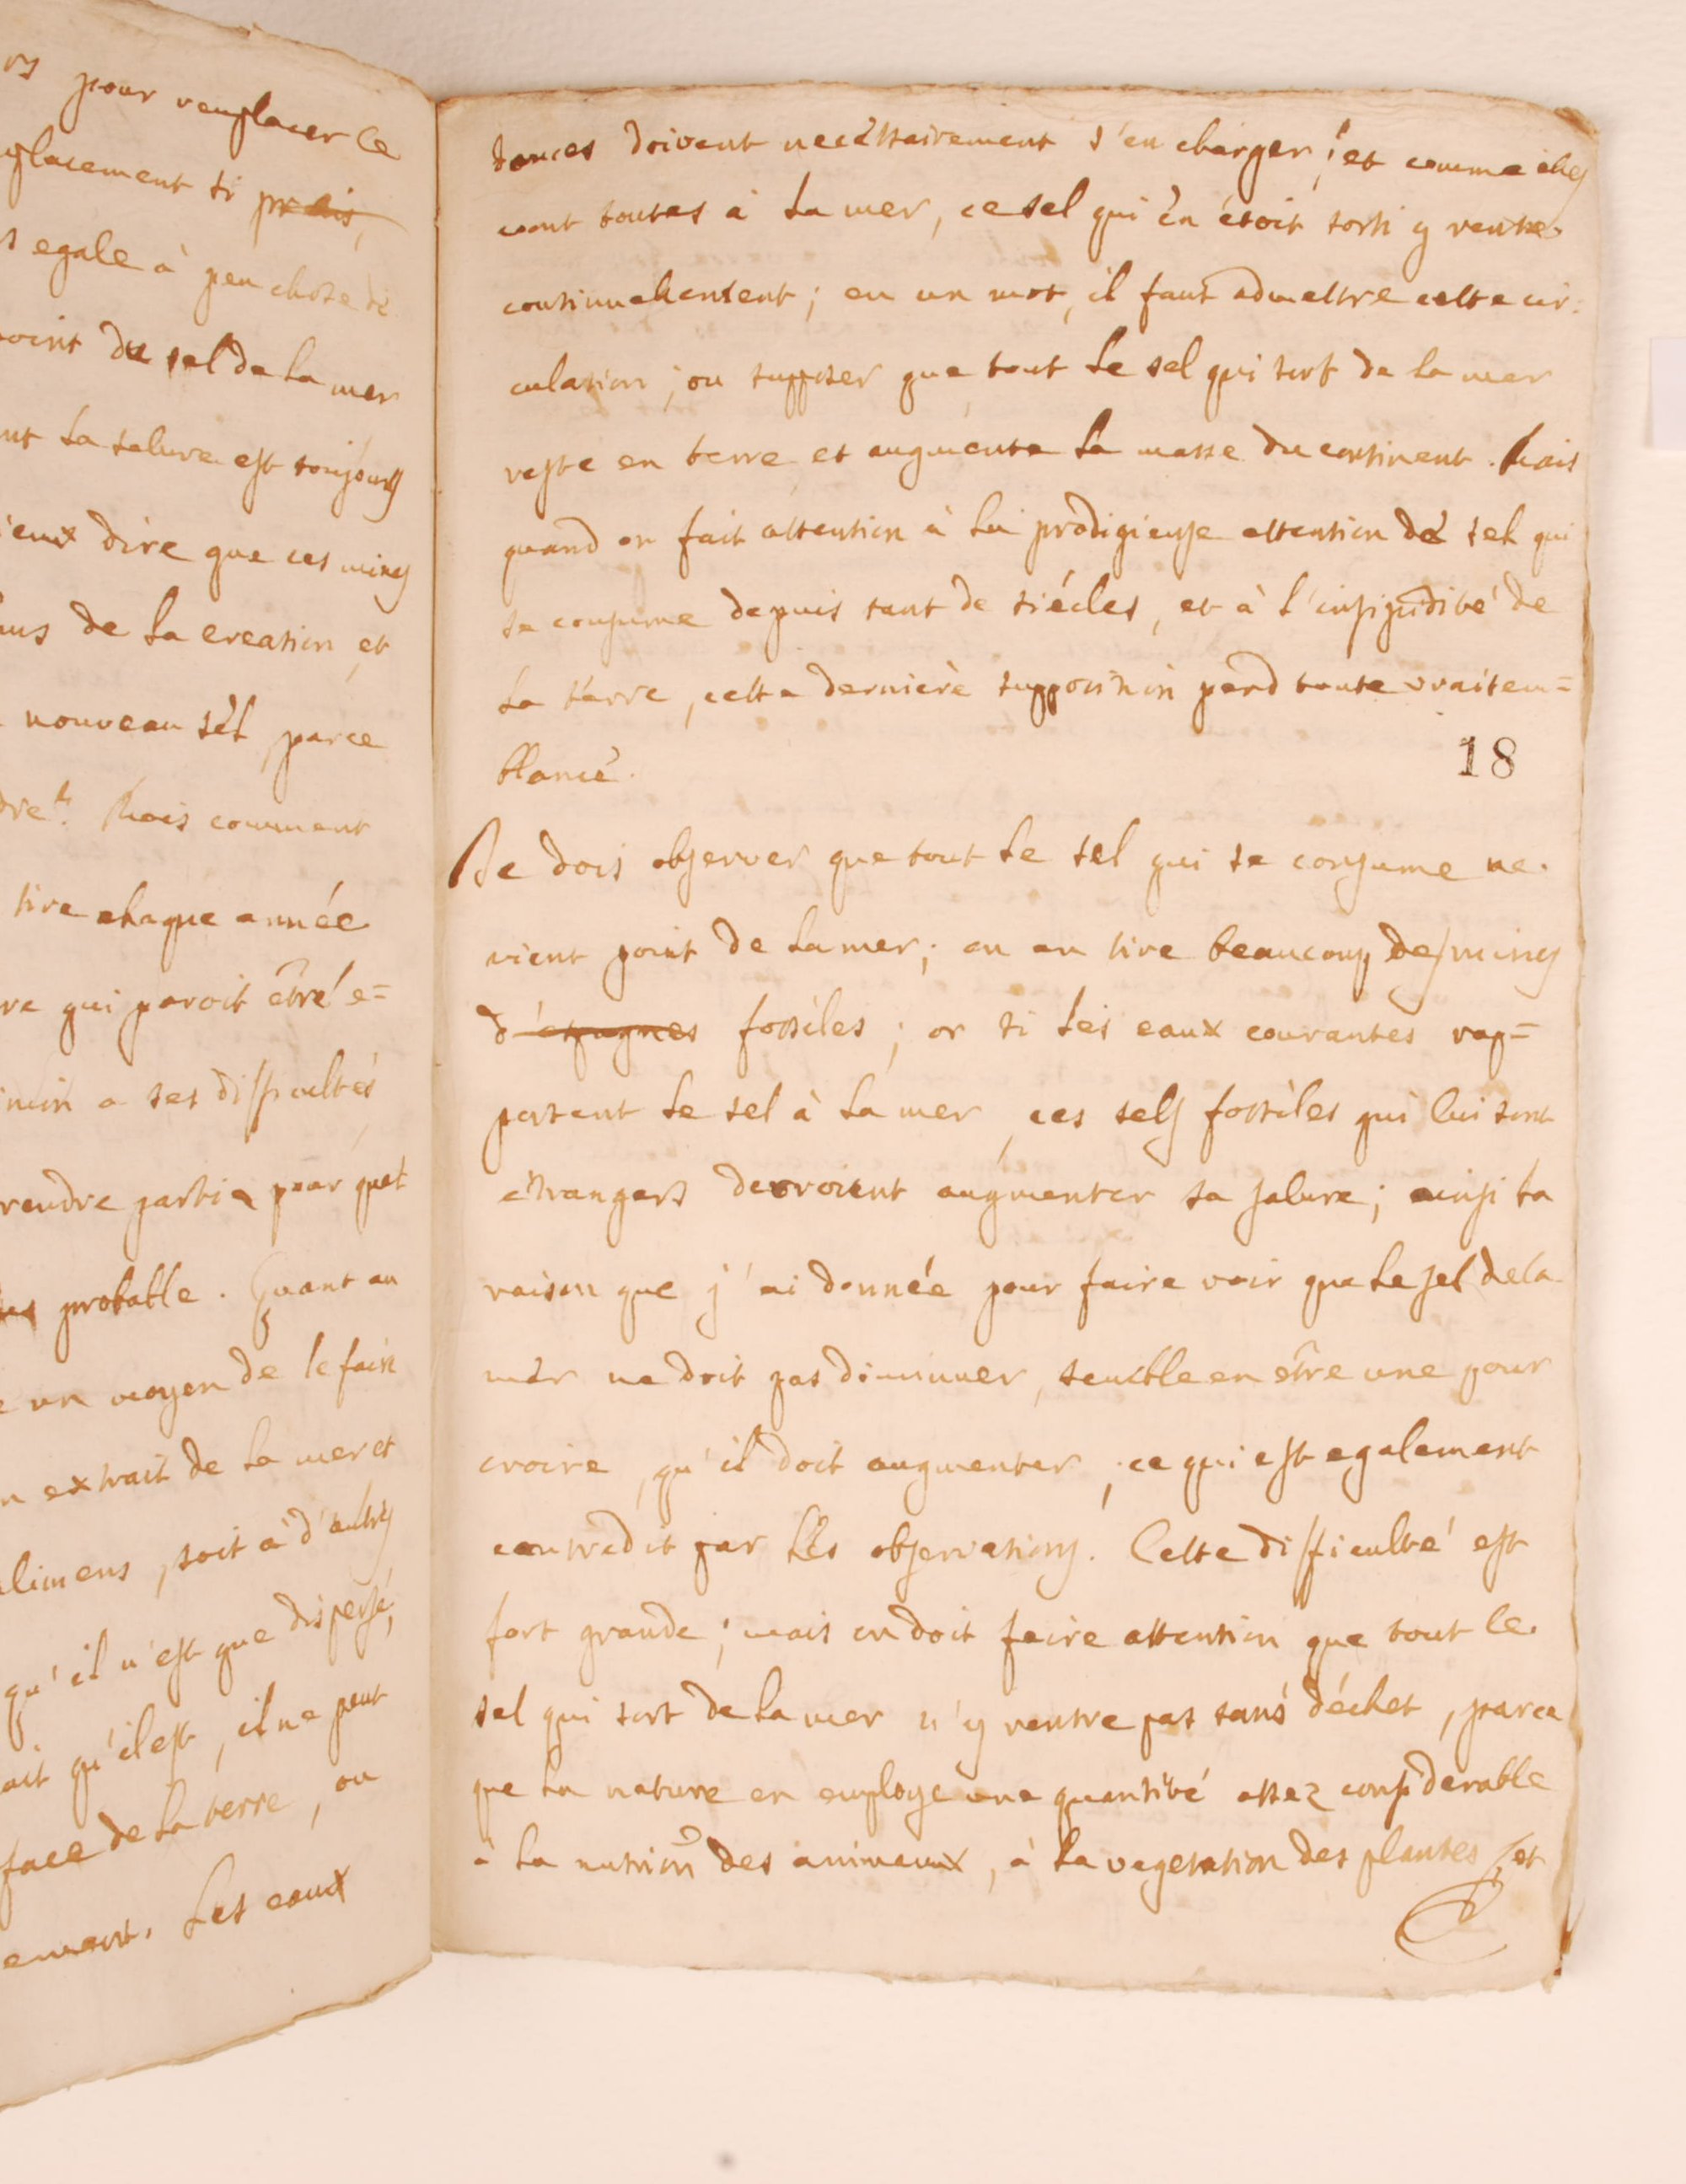 pour remplacer ce
placement si prèis,
egale à peu chose de
point du sel de la mer
nt la salure est toujours
ieux dire que ces mines
ms de la creation, et
nouveau sel, parce
dre.t. Mais comment
tire chaque année
re qui paroit être e=
a ses difficultés,
rendre parti a pour quel
probable. Quant au
un moyen de le faire
n extrait de la mer et
alimens, soit à d'autres
qu'il n'est que dispersé,
ait qu'il est, il ne peut
face de la terre, ou
ement. Les eaux
tances doivent necessairement s'en charger; et comme elles
vont toutes à la mer, ce sel qui en étoit sorti y rentre
continuellement; en un mot, il faut admettre cette cir=
culation; ou supposer que tout le sel qui sort de la mer
reste en terre et augmente la masse du continent. Mais
quand on fait attention à la prodigieuse attention de sel qui
se consume depuis tant de siécles, et à l'insipidité de
la terre, cette derniere supposition perd toute vraisem=
blance.
18
Je dois observer que tout le sel qui se consume ne
vient point de la mer; on en tire beaucoup des mines
d'espagnes fossiles; or si les eaux courantes rap=
portent le sel à la mer, ces sels fossiles qui lui sont
etrangers devroient augmenter sa salure; ainsi la
raison que j'ai donnée pour faire voir que le sel de la
mer ne doit pas diminuer, semble en être une pour
croire, qu'il doit augmenter, ce qui est egalement
contredit par les observations. Cette difficulté est
fort grande; mais on doit faire attention que tout le
sel qui sort de la mer n'y rentre pas sans déchet, parce
que la nature en employe une quantité assez considerable
à la nutrion des animaux, à la vegetation des plantes, et